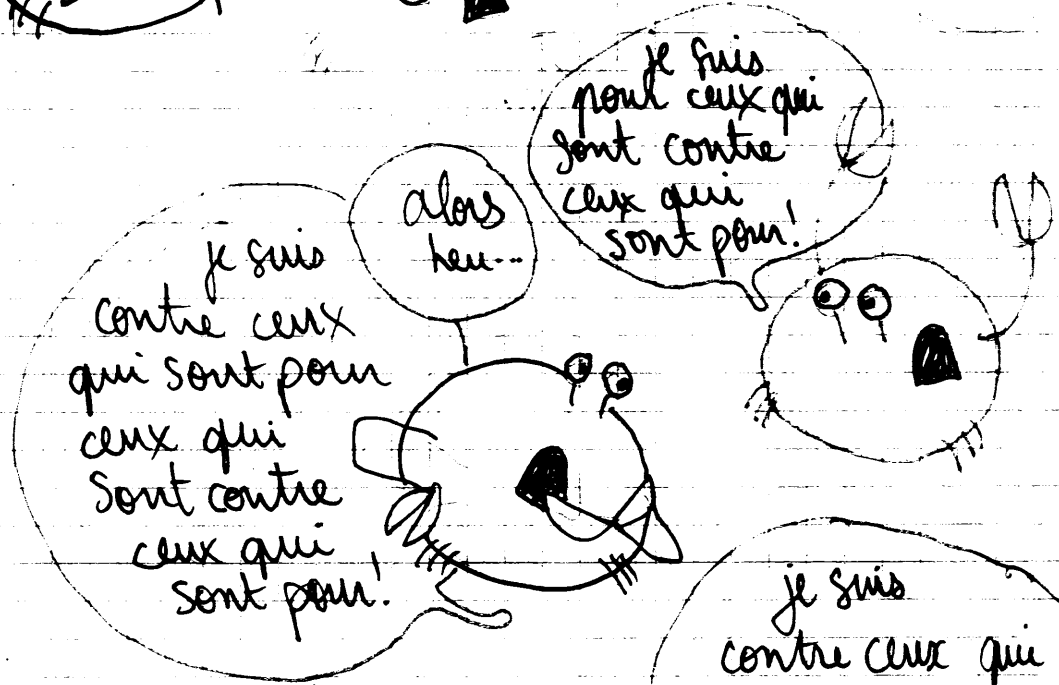 je suis
pour ceux qui
sont contre
ceux qui
sont pour!
alors
heu...
je suis
contre ceux
qui sont pour
ceux qui
sont contre
ceux qui
sont pour!
je suis
contre ceux qui